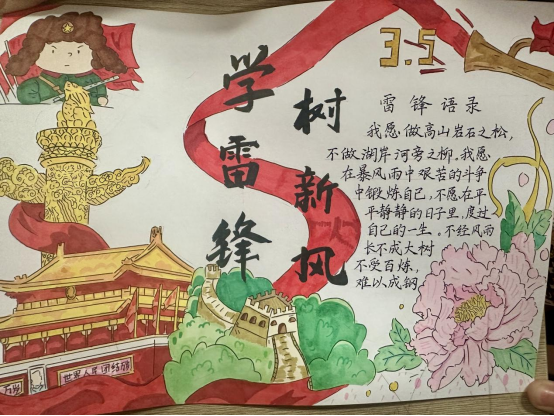 学雷锋
树新风
3.5
雷锋语录
我愿做高山岩石之松,
不做湖岸河旁之柳。我愿
在暴风雨中艰苦的斗争
中锻炼自己,不愿在平
平静静的日子里,度过
自己的一生。不经风雨
长不成大树
不受百炼,
难以成钢
世界人民团结